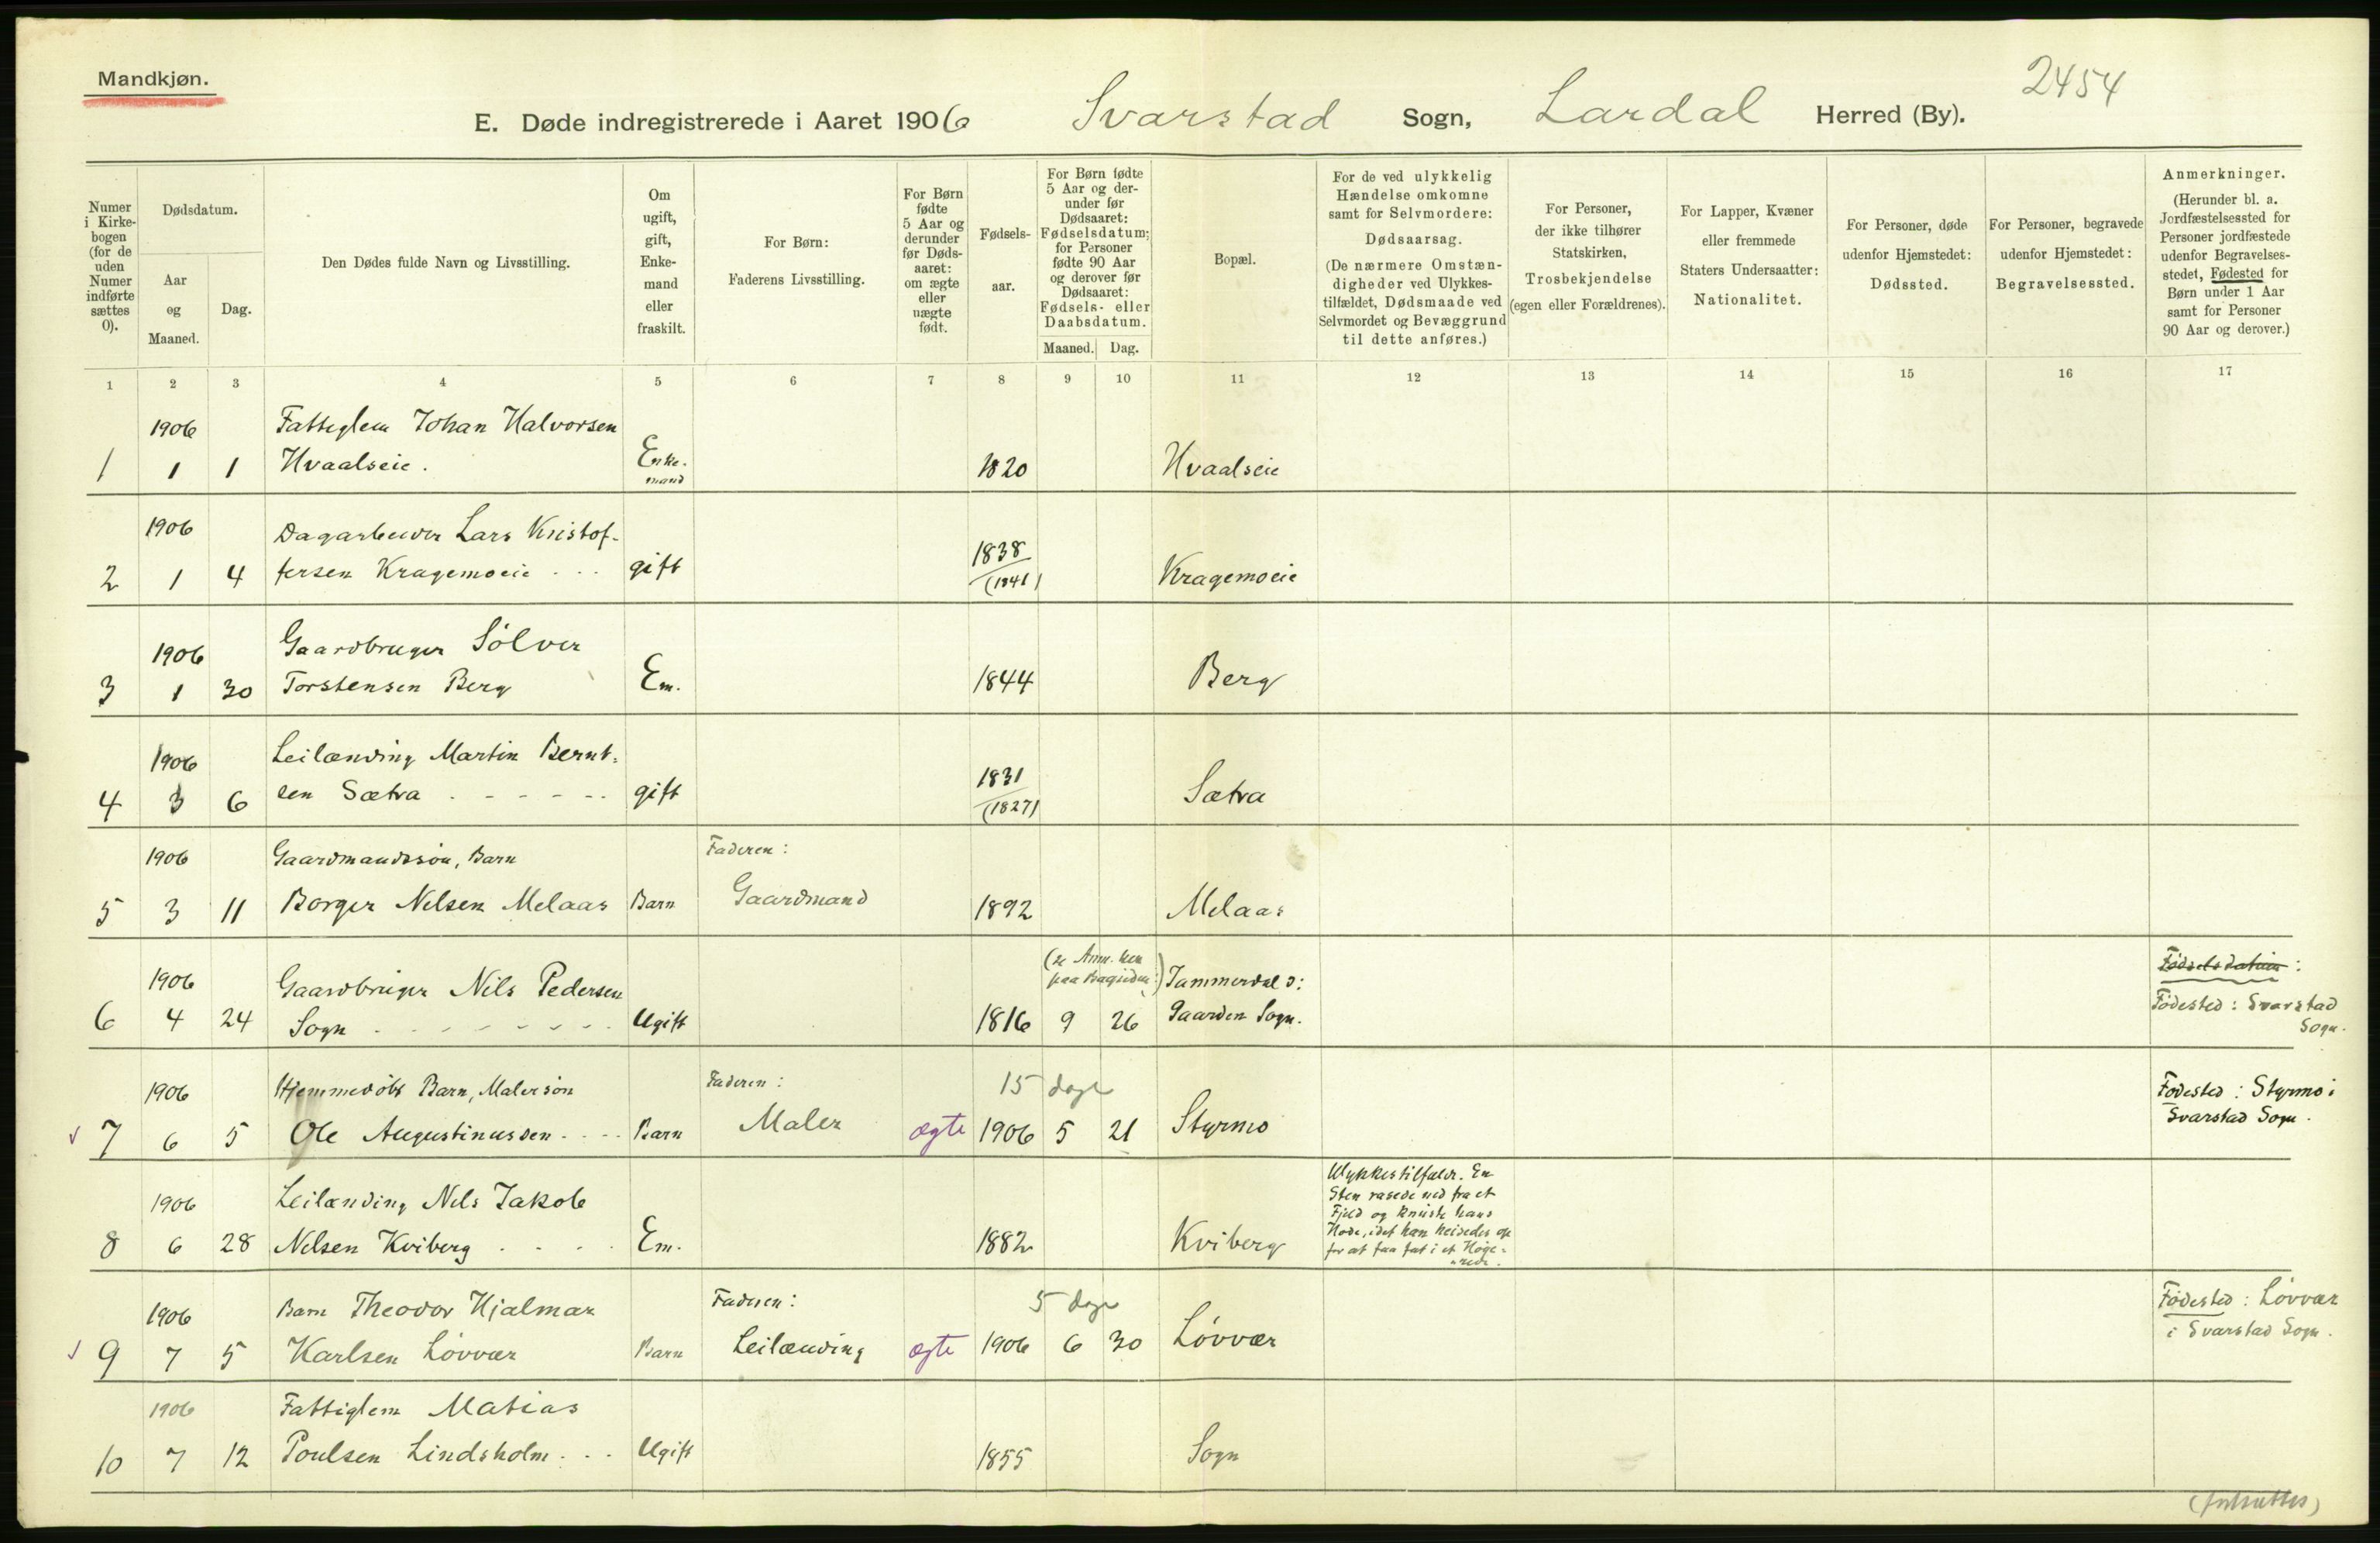 Mandkjøn.
2454
E. Døde indregistrerede i Aaret 1906 Svarstad Sogn, Lardal Herred (By).
Numer i Kirke-bogen (for de uden Numer indførte sættes 0).
Dødsdatum.
Aar og Maaned.
Dag.
Den Dødes fulde Navn og Livsstilling.
Om ugift, gift, Enke-mand eller fraskilt.
For Børn:
Faderens Livsstilling.
For Børn fødte 5 Aar og derunder før Døds-aaret: om ægte eller uægte født.
Fødsels-aar.
For Børn fødte 5 Aar og der-under før Dødsaaret: Fødselsdatum; for Personer fødte 90 Aar og derover før Dødsaaret: Fødsels- eller Daabsdatum.
Maaned. Dag.
Bopæl.
For de ved ulykkelig Hændelse omkomne samt for Selvmordere: Dødsaarsag.
(De nærmere Omstæn-digheder ved Ulykkes-tilfældet, Dødsmaade ved Selvmordet og Bevæggrund til dette anføres.)
For Personer, der ikke tilhører Statskirken, Trosbekjendelse (egen eller Forældrenes).
For Lapper, Kvæner eller fremmede Staters Undersaatter: Nationalitet.
For Personer, døde udenfor Hjemstedet: Dødssted.
For Personer, begravede udenfor Hjemstedet: Begravelsessted.
Anmerkninger.
(Herunder bl. a. Jordfæstelsessted for Personer jordfæstede udenfor Begravelses-stedet, Fødested for Børn under 1 Aar samt for Personer 90 Aar og derover.)
1 2 3 4 5 6 7 8 9 10 11 12 13 14 15 16 17
1906 Fattiglem Johan Halvorsen
1 1 1 Hvaalseie. Enke-mand 1820 Hvaalseie
1906 Dagarbeider Lars Kristof-
2 1 4 fersen Kragemoeie gift 1838 (1841) Kragemoeie
1906 Gaardbruger Sölver
3 1 30 Torstensen Berg Em. 1844 Berg
1906 Leilænding Martin Bernt-
4 3 6 sen Sætra gift 1831 (1827) Sætra
1906 Gaardmandssön, Barn Faderen:
5 3 11 Borger Nelsen Melaas Barn Gaardmand 1892 Melaas
(se Anm. her paa Bagsiden:)
1906 Gaardbruger Nils Pedersen Jammerdal
6 4 24 Sogn Ugift 1816 9 26 Gaarden Sogn.
Födselsdatum:
Födested: Svarstad
Sogn.
1906 Hjemmedöbt Barn, Malersön Faderen: 15 dage
7 6 5 Ole Augustinussen Barn Maler ægte 1906 5 21 Styrmo
Födested: Styrmo i
Svarstad Sogn.
1906 Leilænding Nils Jakob
8 6 28 Nelsen Kviberg Em. 1882 Kviberg
Ulykkestilfælde. En
Sten rasede ned fra et
Fjeld og knuste hans
Hode, idet han heisedes op
for at faa fat i et Höge-
rede.
1906 Barn Theodor Hjalmar Faderen: 5 dage
9 7 5 Karlsen Lövvær Barn Leilænding ægte 1906 6 30 Lövvær
Födested: Lövvær
i Svarstad Sogn.
1906 Fattiglem Matias
10 7 12 Poulsen Lindsholm Ugift 1855 Sogn
(fortsættes)